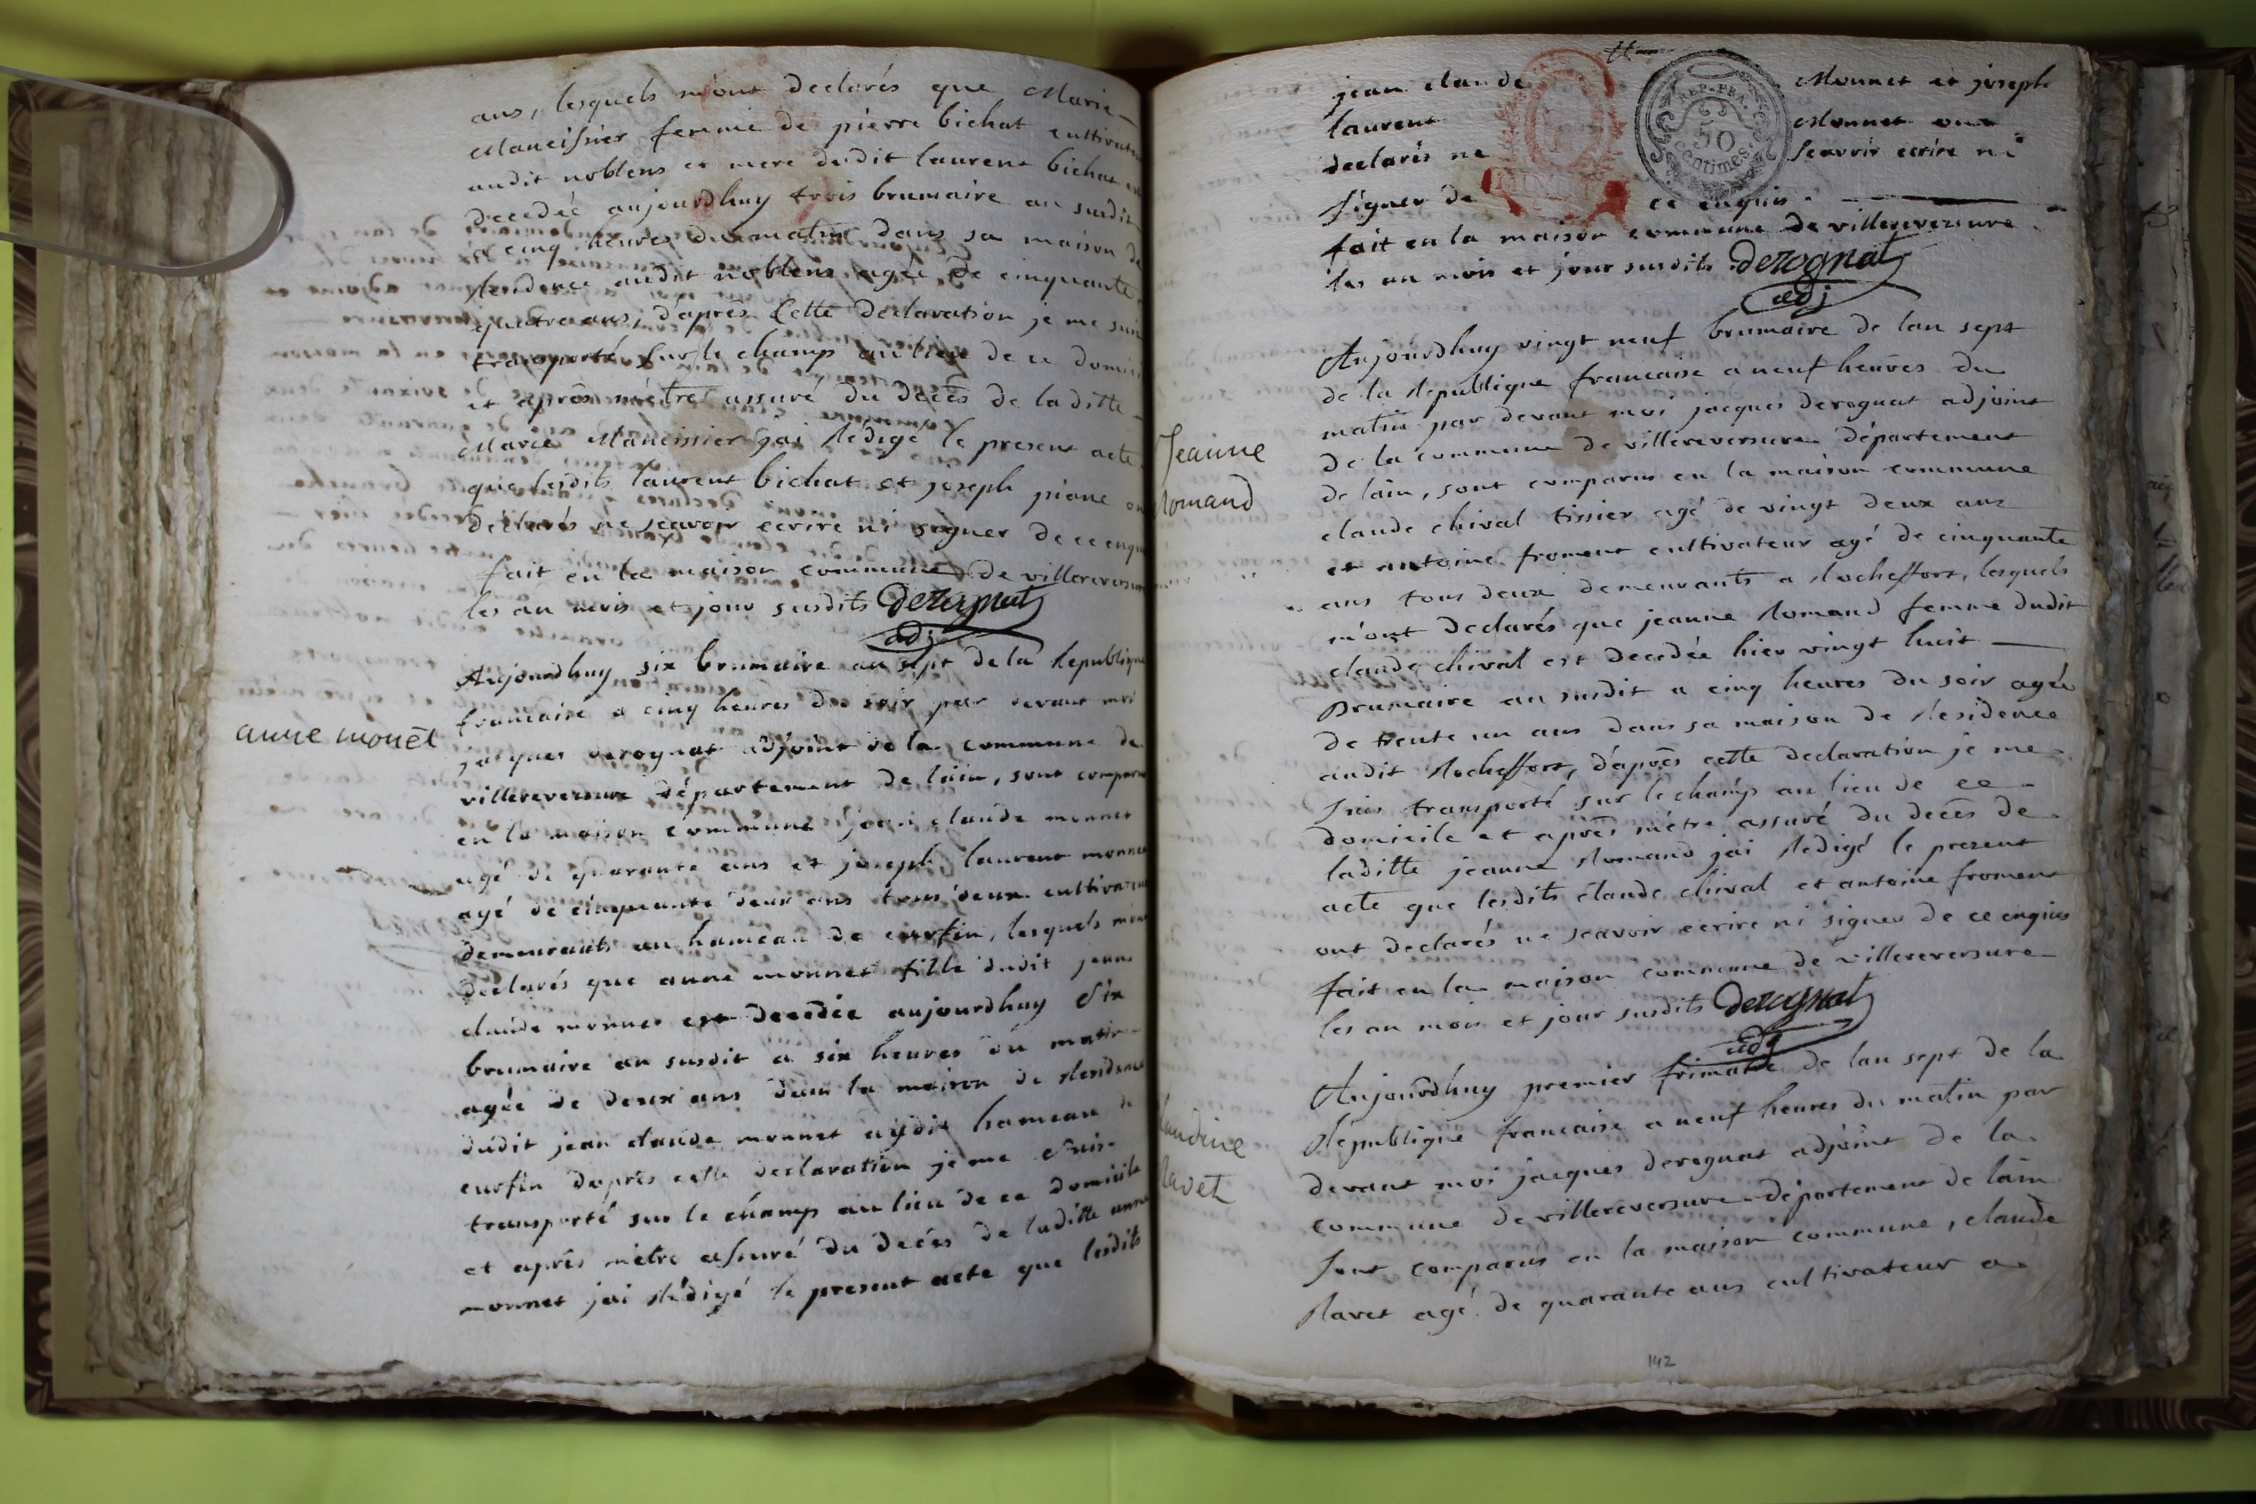 ans, lesquels m'ont declarés que Marie
Maneissier femme de pierre bichat cultivate
audit noblens et mere dudit laurent bichat est
decedée aujourdhuy trois brumaire an susdit
a cinq heures du matin dans sa maison de
Residence audit noblens agée de cinquante
quatre ans, d'aprês Cette declaration je me suis
transporté sur le champ au lieu de ce domici
et aprês m'être assuré du decês de laditte
Marie Maneissier j'ai Rédigé le present acte
que lesdits laurent bichat et joseph piane on
declarés ne scavoir ecrire ni signer de ce enqu
fait en la maison commune de villereversur
les an mois et jour susdits derognat
adj
anne monet
Aujourdhuy six brumaire an sept de la Republique
francaise a cinq heures du soir par devant moi
jacques derognat adjoint de la commune de
villereversure département de lain, sont comparu
en la maison commune jean claude monnet
agé de quarante ans et joseph laurent monne
agé de cinquante deux ans tous deux cultivateu
demeurants au hameau de curfin, lesquels m'ont
declarés que anne monnet fille dudit jean
claude monnet est decedée aujourdhuy Six
brumaire an susdit a six heures du matin
agée de deux ans dans la maison de Residence
dudit jean claude monnet audit hameau de
curfin d'aprês cette declaration je me Suis
transporté sur le champ au lieu de ce domicile
et aprês m'être assuré du decês de laditte anne
monnet jai Rédigé le present acte que lesdits
jean claude Monnet et joseph
laurent Monnet ont
declarés ne Scavoir ecrire ni
Signer de ce enquis
REP. FRA.
50
centimes.
fait en la maison commune de villereversure
les an mois et jour susdits derognat
adj
Jeanne
Romand
Aujourdhuy vingt neuf brumaire de lan sept
de la Republique francaise a neuf heures du
matin par devant moi jacques derognat adjoint
de la commune de villereversure département
de lain, sont comparus en la maison commune
claude chival tissier agé de vingt deux ans
et antoine froment cultivateur agé de cinquante
ans tous deux demeurants a Rocheffort, lesquels
m'ont declarés que jeanne Romand femme dudit
claude chival est decedée hier vingt huit
Brumaire an susdit a cinq heures du soir agée
de trente un ans dans sa maison de Residence
audit Rocheffort, d'aprês cette declaration je me
suis transporté sur le champ au lieu de ce
domicile et aprês m'être assuré du decês de
laditte jeanne Romand jai Redigé le present
acte que lesdits claude chival et antoine froment
ont declarés ne scavoir ecrire ni signer de ce enquis
fait en la maison commune de villereversure
les an mois et jour susdits derognat
adj
laudine
Ravet
Aujourdhuy premier frimaire de lan sept de la
République francaise a neuf heures du matin par
devant moi jacques derognat adjoint de la
commune de villereversure département de lain
sont comparus en la maison commune, claude
Ravet agé de quarante ans cultivateur a
142